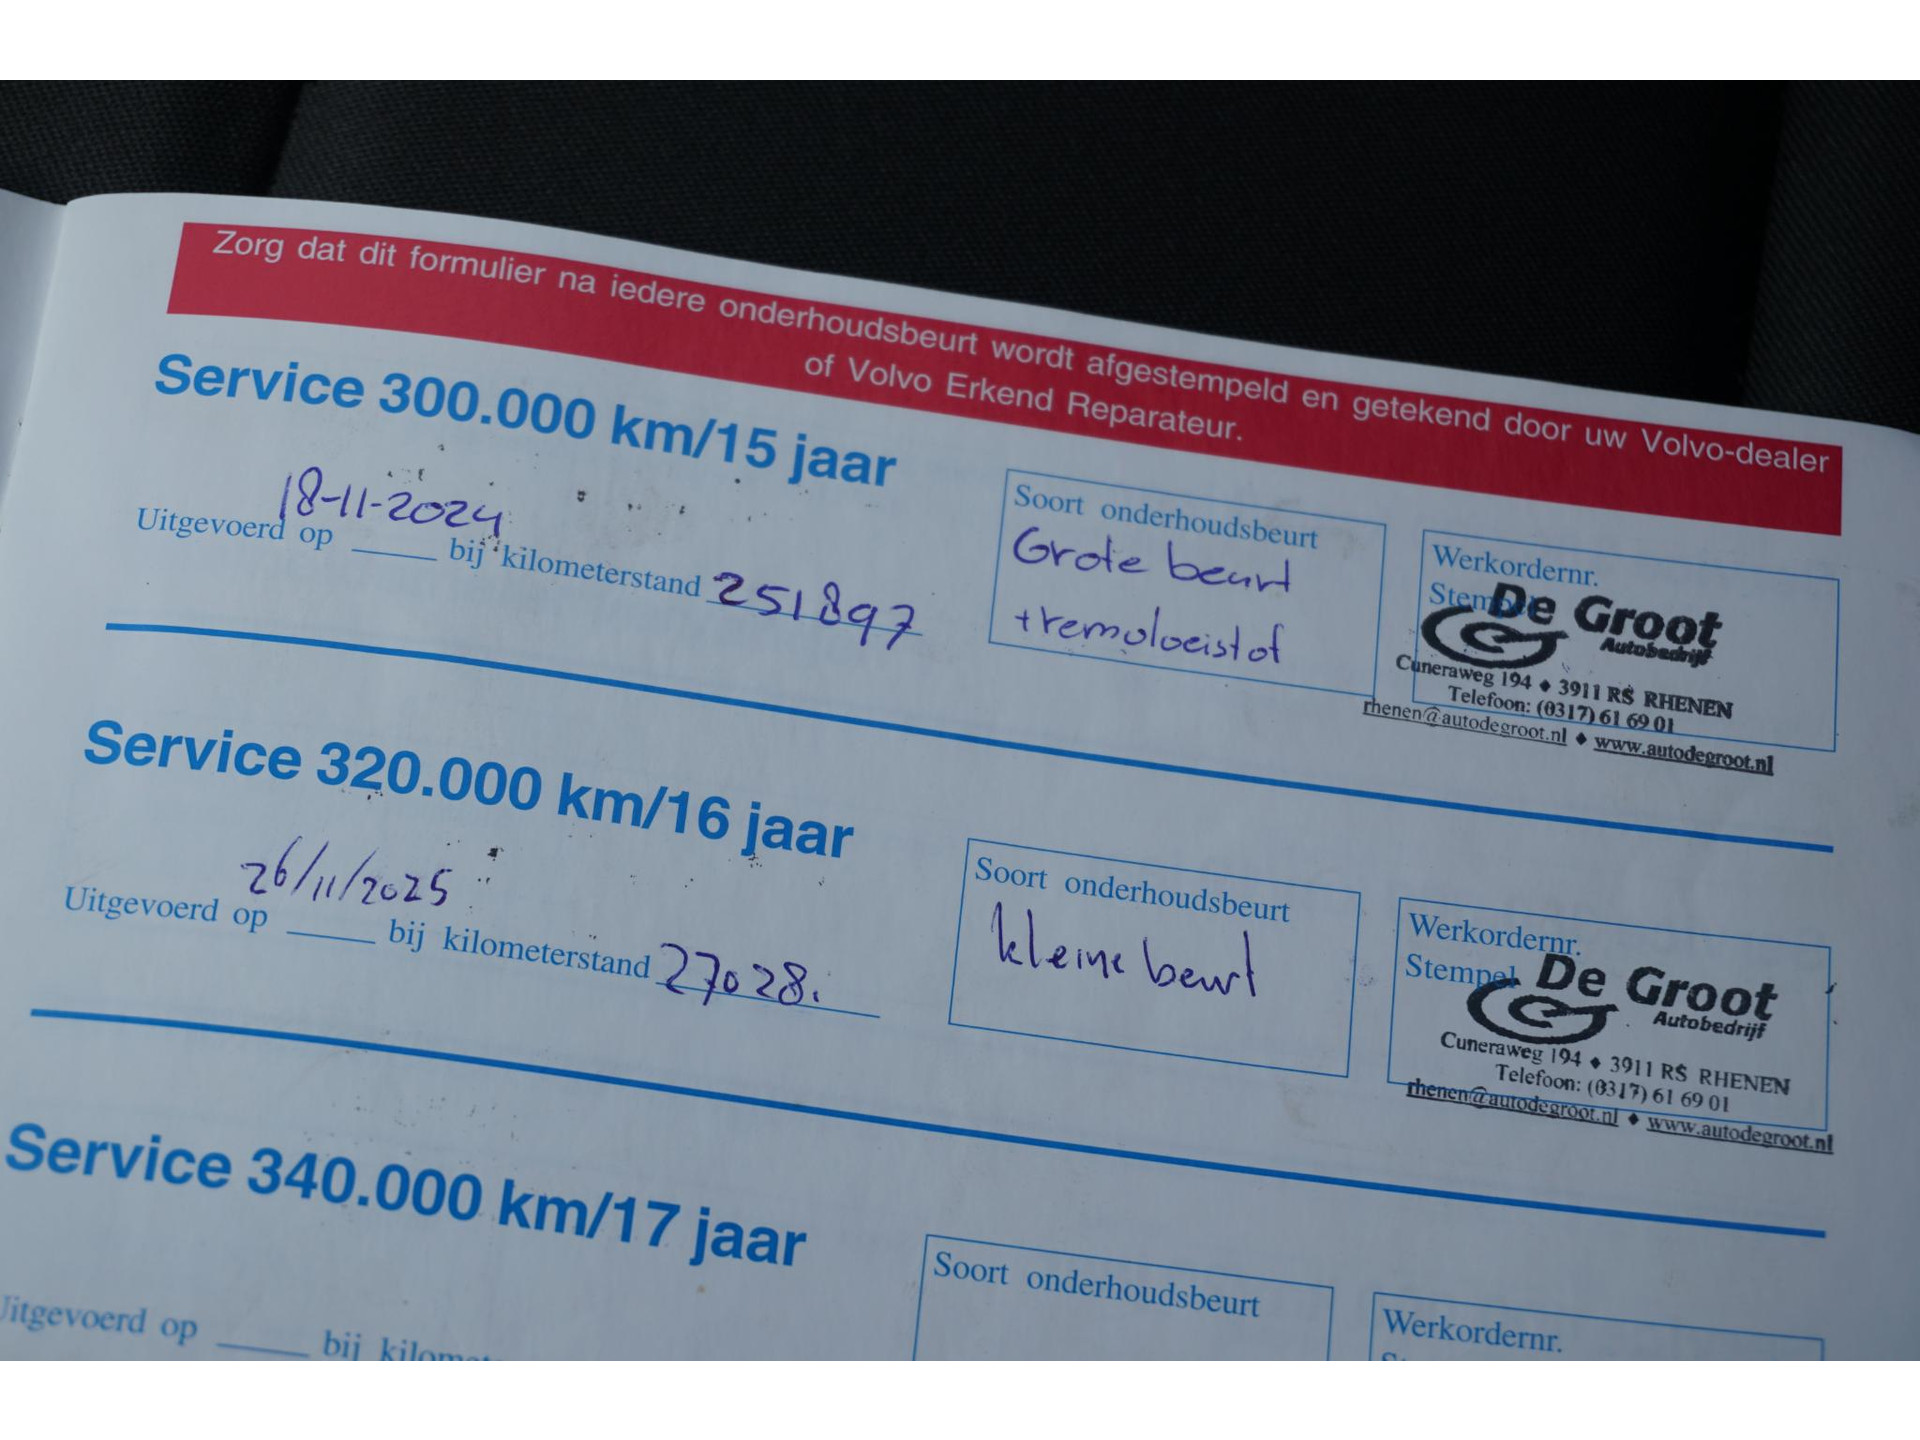 Zorg dat dit formulier na iedere onderhoudsbeurt wordt afgestempeld en getekend door uw Volvo-dealer
of Volvo Erkend Reparateur.
Service 300.000 km/15 jaar
18-11-2024
Uitgevoerd op ____ bij kilometerstand 251897
Soort onderhoudsbeurt
Grote beurt
+ remvloeistof
Werkordernr.
Stempel
De Groot
Autobedrijf
Cuneraweg 194 ♦ 3911 RS RHENEN
Telefoon: (0317) 61 69 01
rhenen@autodegroot.nl ♦ www.autodegroot.nl
Service 320.000 km/16 jaar
26/11/2025
Uitgevoerd op ____ bij kilometerstand 27028.
Soort onderhoudsbeurt
kleine beurt
Werkordernr.
Stempel
De Groot
Autobedrijf
Cuneraweg 194 ♦ 3911 RS RHENEN
Telefoon: (0317) 61 69 01
rhenen@autodegroot.nl ♦ www.autodegroot.nl
Service 340.000 km/17 jaar
Uitgevoerd op ____ bij
Soort onderhoudsbeurt
Werkordernr.